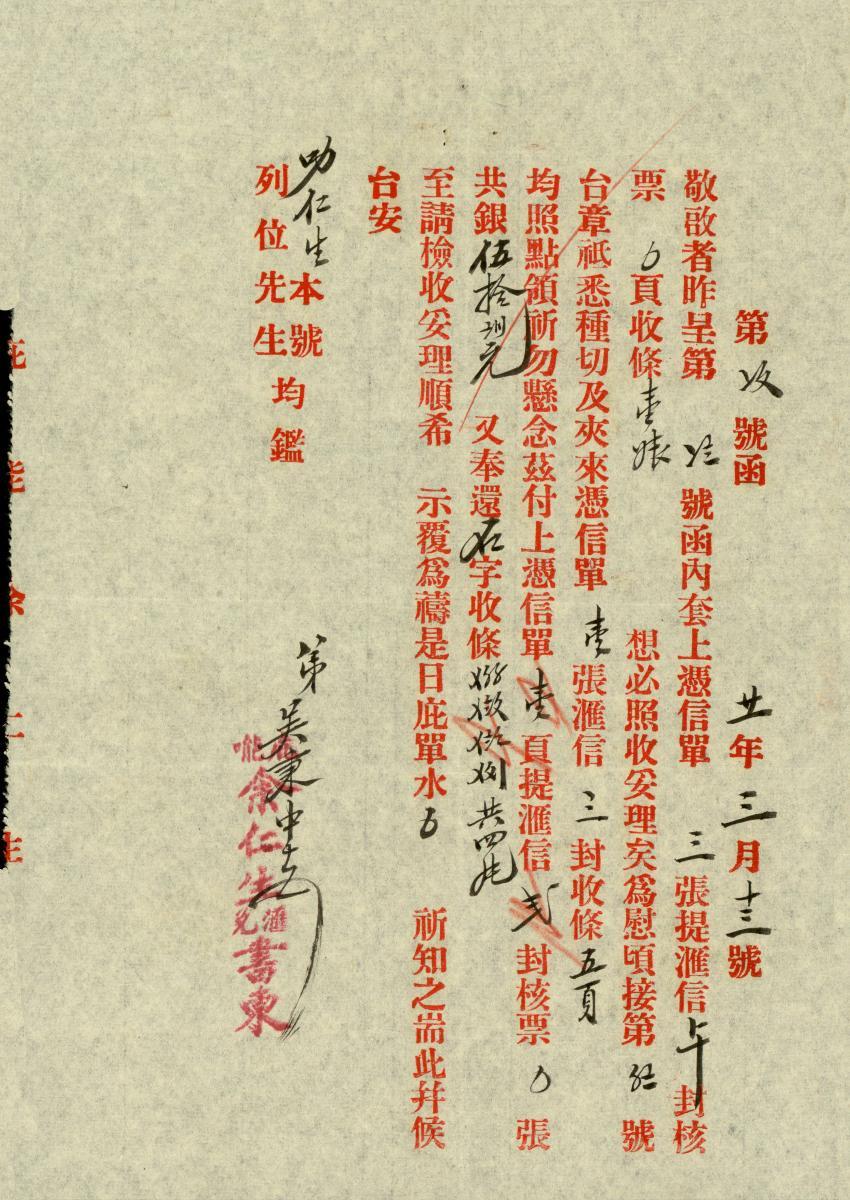 廿年三月十三號
第 號函
敬啟者昨呈第 號函內套上憑信單三張提滙信 封核
票〇頁收條壹 想必照收妥理矣為慰頃接第 號
台章祗悉種切及夾來憑信單壹張滙信三封收條五頁
均照點領祈勿懸念茲付上憑信單壹頁提滙信弍封核票〇張
共銀伍拾 元 又奉還 字收條 共四
至請檢收妥理順希 示覆為禱是日庇單水 祈知之耑此幷候
台安
叻仁生本號
列位先生均鑑
弟吳秉中
余仁生滙兌書柬